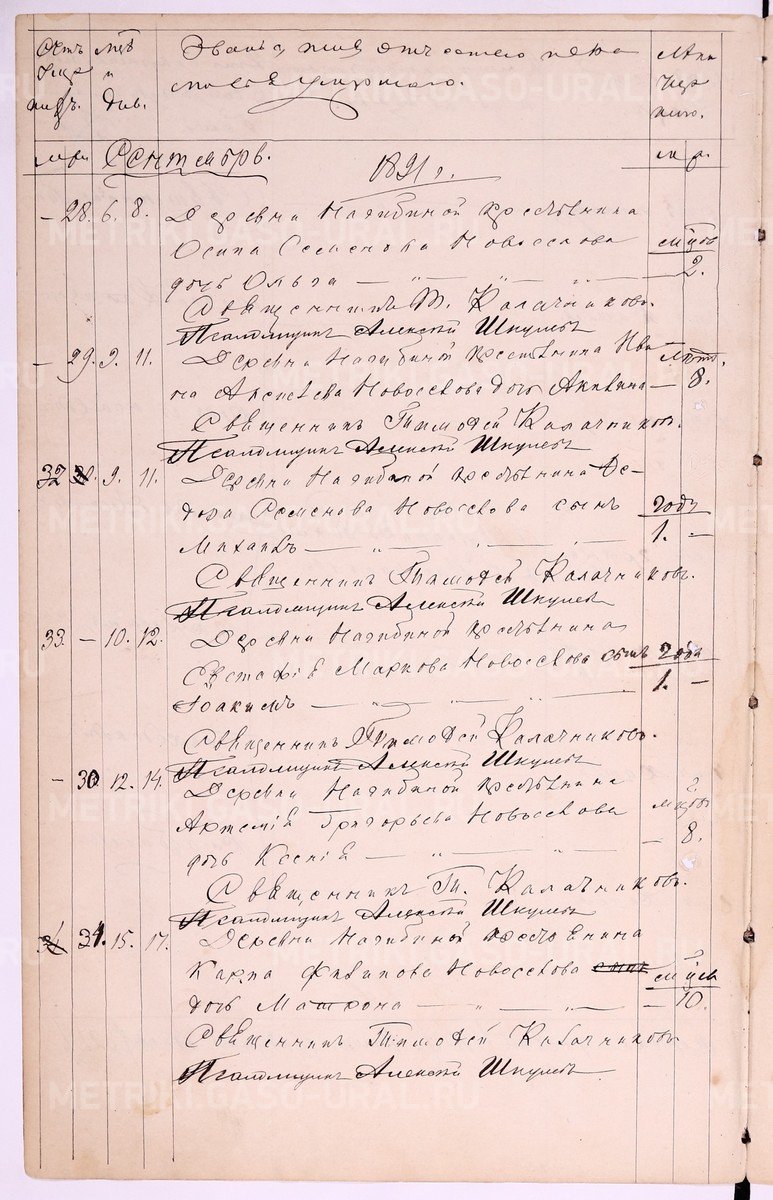 Счетъ мцъ Званіе, имя отчество и фа
умер и
шихъ. дни.
Сентябрь. 1891 г.
28. 6. 8. Деревни Нагибиной крестьянина
Осипа Семенова Новоселова мцов
дочь Ольга — „ — „ — 2.
Священникъ Т. Калачниковъ.
Псаломщикъ Алексей Шкулевъ
29. 9. 11. Деревни Нагибиной крестьянина Ива
на Алексеева Новоселова дочь Акилина — 8.
Священникъ Тимофей Калачниковъ.
Псаломщикъ Алексей Шкулевъ
32 9. 11. Деревни Нагибиной крестьянина Фе-
дора Семенова Новоселова сынъ году
Михаилъ — „ — 1. —
Священникъ Тимофей Калачниковъ.
Псаломщикъ Алексей Шкулевъ
33. — 10. 12. Деревни Нагибиной крестьянина
Маркова Новоселова сынъ года
Іоакимъ — „ — 1. —
Священникъ Тимофей Калачниковъ.
Псаломщикъ Алексей Шкулевъ
— 30 12. 14. Деревни Нагибиной крестьянина
Артемій Григорьева Новоселова мцовъ
дочь Ксеній — „ — „ — 8.
Священникъ Т. Калачниковъ.
Псаломщикъ Алексей Шкулевъ
31. 15. 17. Деревни Нагибиной крестьянина
Карпа Филипова Новоселова сынъ
дочь Матрона — „ — „ — 10.
Священникъ Тимофей Калачниковъ
Псаломщикъ Алексей Шкулевъ
METRIKI.GASO-URAL.RU